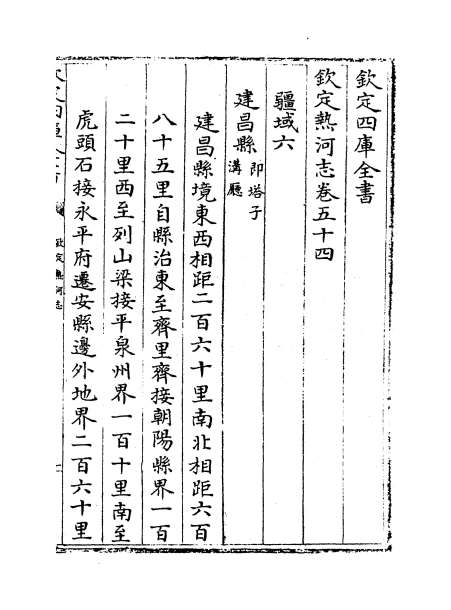 欽定四庫全書
欽定熱河志卷五十四
疆域六
建昌縣即塔子溝廳
建昌縣境東西相距二百六十里南北相距六百
八十五里自縣治東至齊里齊接朝陽縣界一百
二十里西至列山梁接平泉州界一百十里南至
虎頭石接永平府遷安縣邊外地界二百六十里
欽定熱河志